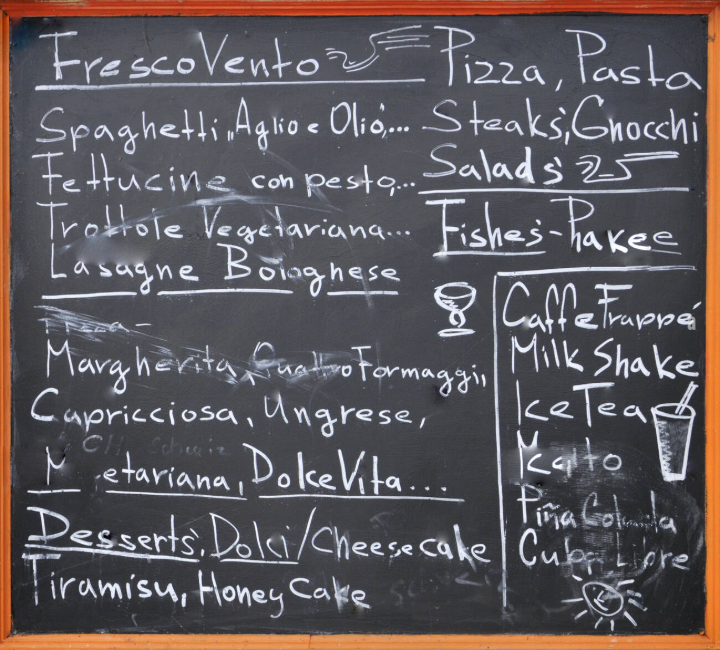 FrescoVento
Spaghetti „Aglio e Olio,...
Fettucine con pesto,...
Trottole Vegetariana...
Lasagne Bolognese
Pizza, Pasta
Steaks, Gnocchi
Salads
Fishes-Pakee
Margherita, Quattro Formaggi,
Capricciosa, Ungrese,
etariana, DolceVita...
Desserts, Dolci/Cheesecake
Tiramisu, Honey Cake
Caffe Frappé
Milk Shake
Ice Tea
Piña Colada
Cuba Libre